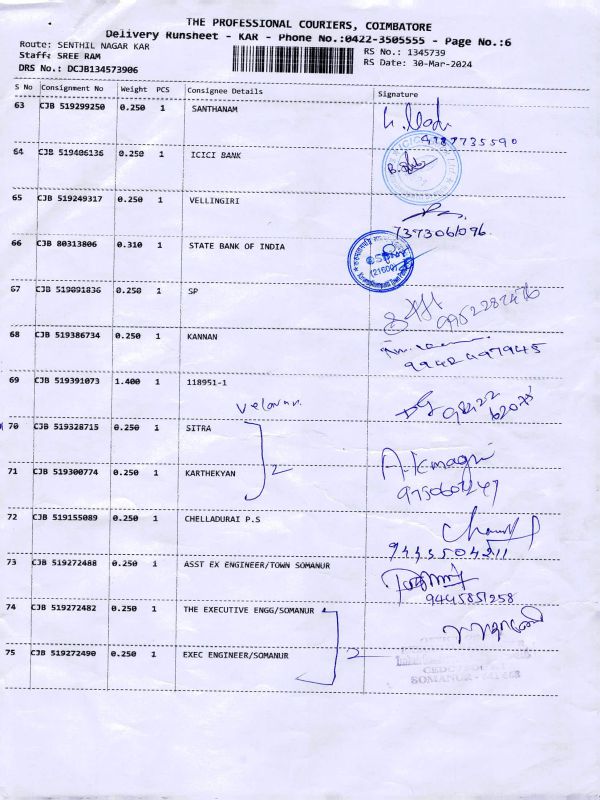 THE PROFESSIONAL COURIERS, COIMBATORE
Delivery Runsheet - KAR - Phone No.:0422-3505555 - Page No.:6
Route: SENTHIL NAGAR KAR
RS No.: 1345739
Staff: SREE RAM
RS Date: 30-Mar-2024
DRS No.: DCJB134573906
S No Consignment No Weight PCS Consignee Details Signature
63 CJB 519299250 0.250 1 SANTHANAM
9787735590
64 CJB 519406136 0.250 1 ICICI BANK
65 CJB 519249317 0.250 1 VELLINGIRI
7373061096
66 CJB 80313806 0.310 1 STATE BANK OF INDIA
67 CJB 519091836 0.250 1 SP
9952282476
68 CJB 519386734 0.250 1 KANNAN
9942497945
69 CJB 519391073 1.400 1 118951-1
Velavan
70 CJB 519328715 0.250 1 SITRA
71 CJB 519300774 0.250 1 KARTHEKYAN
2
72 CJB 519155089 0.250 1 CHELLADURAI P.S
73 CJB 519272488 0.250 1 ASST EX ENGINEER/TOWN SOMANUR
9445851258
74 CJB 519272482 0.250 1 THE EXECUTIVE ENGG/SOMANUR
75 CJB 519272490 0.250 1 EXEC ENGINEER/SOMANUR
2
SOMANUR